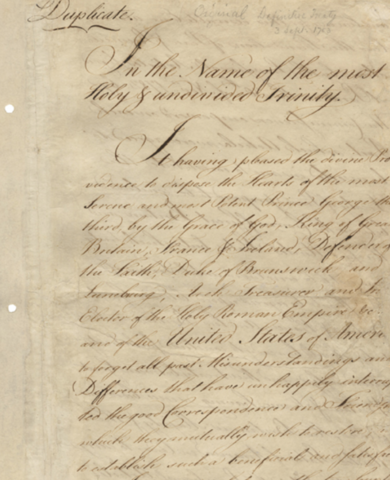 Duplicate.
In the Name of the most
Holy & undivided Trinity.
It having pleased the divine Pro
vidence to dispose the Hearts of the most
Serene and most Potent Prince George the
third, by the Grace of God, King of Great
Britain, France & Ireland, Defender of
the Faith, Duke of Brunswick and
Lunebourg, Arch Treasurer and
Elector of the Holy Roman Empire &c.
and of the United States of Ameri
to forget all past Misunderstandings and
Differences that have unhappily interru
ted the good Correspondence and Friends
which they mutually wish to restore;
to establish such a beneficial and satisfa